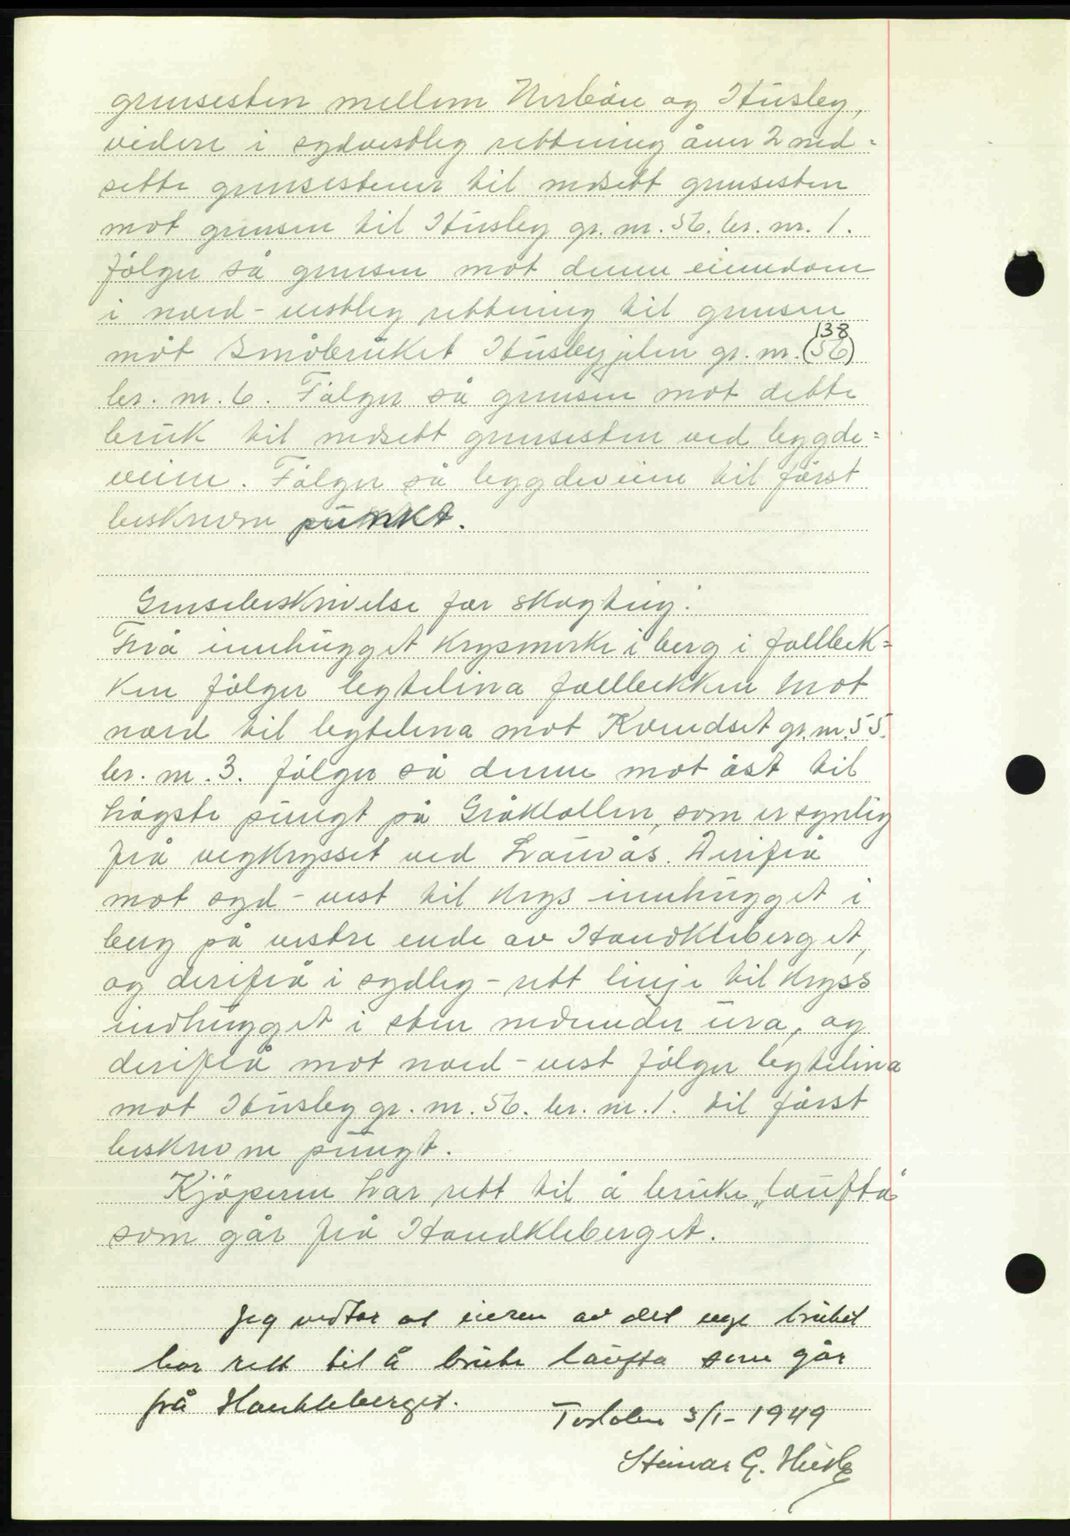 grensesten mellem Nerbøu og Husby,
videre i sydvestleg rettning åver 2 ned-
sette grensestener til nedsett grensesten
mot grensen til Husby gr. nr. 56. br. nr. 1.
følger så grensen mot denne eiendom
i nord-vestleg rettning til grensen
138
mot Småbruket Husbyjelen gr. nr. (56)
br. nr. 6. Følger så grensen mot dette
bruk til nedsett grensesten ved bygde-
veien. Følger så bygdeveien til først
beskreven punkt.
Grensebeskrivelse for skogteig.
Frå innhugget krysmerke i berg i fallbek-
ken følger bytelina fallbekken mot
nord til bytelina mot Kvendset gr. nr. 55.
br. nr. 3. følger så denne mot åst til
høgste pungt på Gråkollen, som er synlig
frå vegkrysset ved Lauvås. Derifrå
mot syd-vest til krys innhugget i
berg på vestre ende av Handkleberget,
og derifrå i sydleg-rett linje til kryss
indhugget i sten nedunder ura, og
derifrå mot nord-vest følger bytelina
mot Husby gr. nr. 56. br. nr. 1. til først
beskreven pungt.
Kjøperen har rett til å bruke „lauftå
som går frå Handkleberget.
Jeg vedtar at eieren av det nye bruket
har rett til å bruke laufta som går
frå Hankleberget.
3/1-1949
Steinar G. Husby